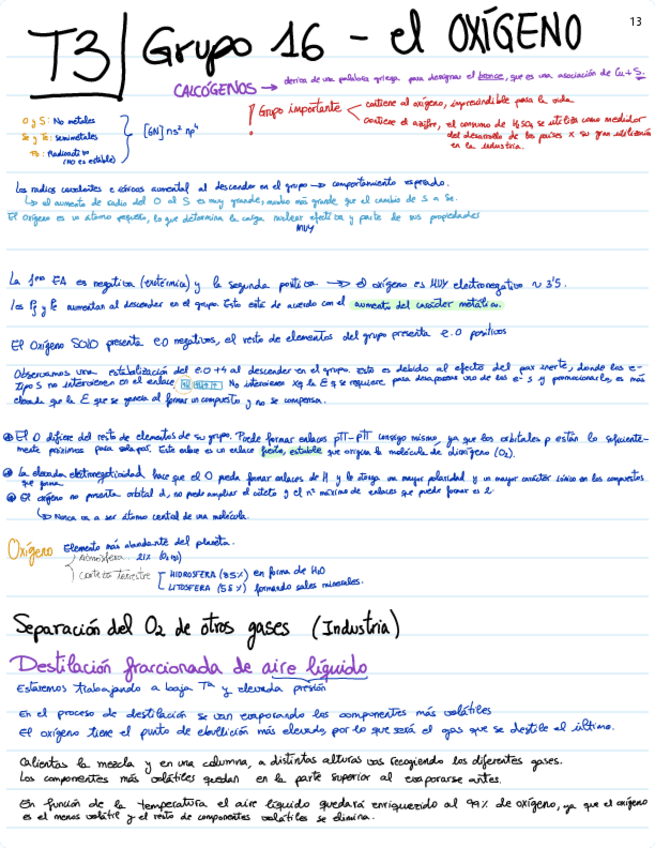 13
T3 | Grupo 16 - el OXÍGENO
CALCÓGENOS → deriva de una palabra griega para designar el bronce, que es una asociación de Cu + S.
! Grupo importante
contiene al oxígeno, imprescindible para la vida
contiene el azufre, el consumo de H2SO4 se utiliza como medidor
del desarrollo de los países x su gran utilización
en la industria.
O y S: No metales
Se y Te: semimetales
Po: Radioactivo
(NO es estable)
[GN] ns² np⁴
Los radios covalentes e iónicos aumentan al descender en el grupo → comportamiento esperado.
↳ el aumento de radio del O al S es muy grande, mucho más grande que el cambio de S a Se.
El oxígeno es un átomo pequeño, lo que determina la carga nuclear efectiva y parte de sus propiedades
MUY
La 1era EA es negativa (exotérmica) y la segunda positiva → el oxígeno es MUY electronegativo ~ 3'5.
Los Pf y Pe aumentan al descender en el grupo. Esto está de acuerdo con el aumento del carácter metálico.
El Oxígeno SOLO presenta e.o negativos, el resto de elementos del grupo presenta e.o positivos
Observamos una estabilización del e.o +4 al descender en el grupo. Esto es debido al efecto del par inerte, donde los e-
tipo s no intervienen en el enlace No intervienen xq la E q se requiere para desaparear uno de los e- s y promocionarlo, es más
elevada que la E que se genera al formar un compuesto y no se compensa.
El O difiere del resto de elementos de su grupo. Puede formar enlaces pπ-pπ consigo mismo, ya que los orbitales p están lo suficiente-
mente próximos para solapar. Este enlace es un enlace fuerte, estable que origina la molécula de dioxígeno (O2).
La elevada electronegatividad hace que el O pueda formar enlaces de H y le otorga una mayor polaridad y un mayor carácter iónico en los compuestos
que forma.
El oxígeno no presenta orbital d, no puede ampliar el octeto y el nº máximo de enlaces que puede formar es 2.
↳ Nunca va a ser átomo central de una molécula.
Oxígeno Elemento más abundante del planeta.
Atmósfera 21% (O2 (g))
Corteza terrestre
HIDROSFERA (85%) en forma de H2O
LITOSFERA (55%) formando sales minerales.
Separación del O2 de otros gases (Industria)
Destilación fraccionada de aire líquido
Estaremos trabajando a baja Tª y elevada presión
En el proceso de destilación se van evaporando los componentes más volátiles
El oxígeno tiene el punto de ebullición más elevado, por lo que será el gas que se destile el último.
Calientas la mezcla y en una columna, a distintas alturas vas recogiendo los diferentes gases.
Los componentes más volátiles quedan en la parte superior al evaporarse antes.
En función de la temperatura el aire líquido quedará enriquecido al 99% de oxígeno, ya que el oxígeno
es el menos volátil y el resto de componentes volátiles se elimina.